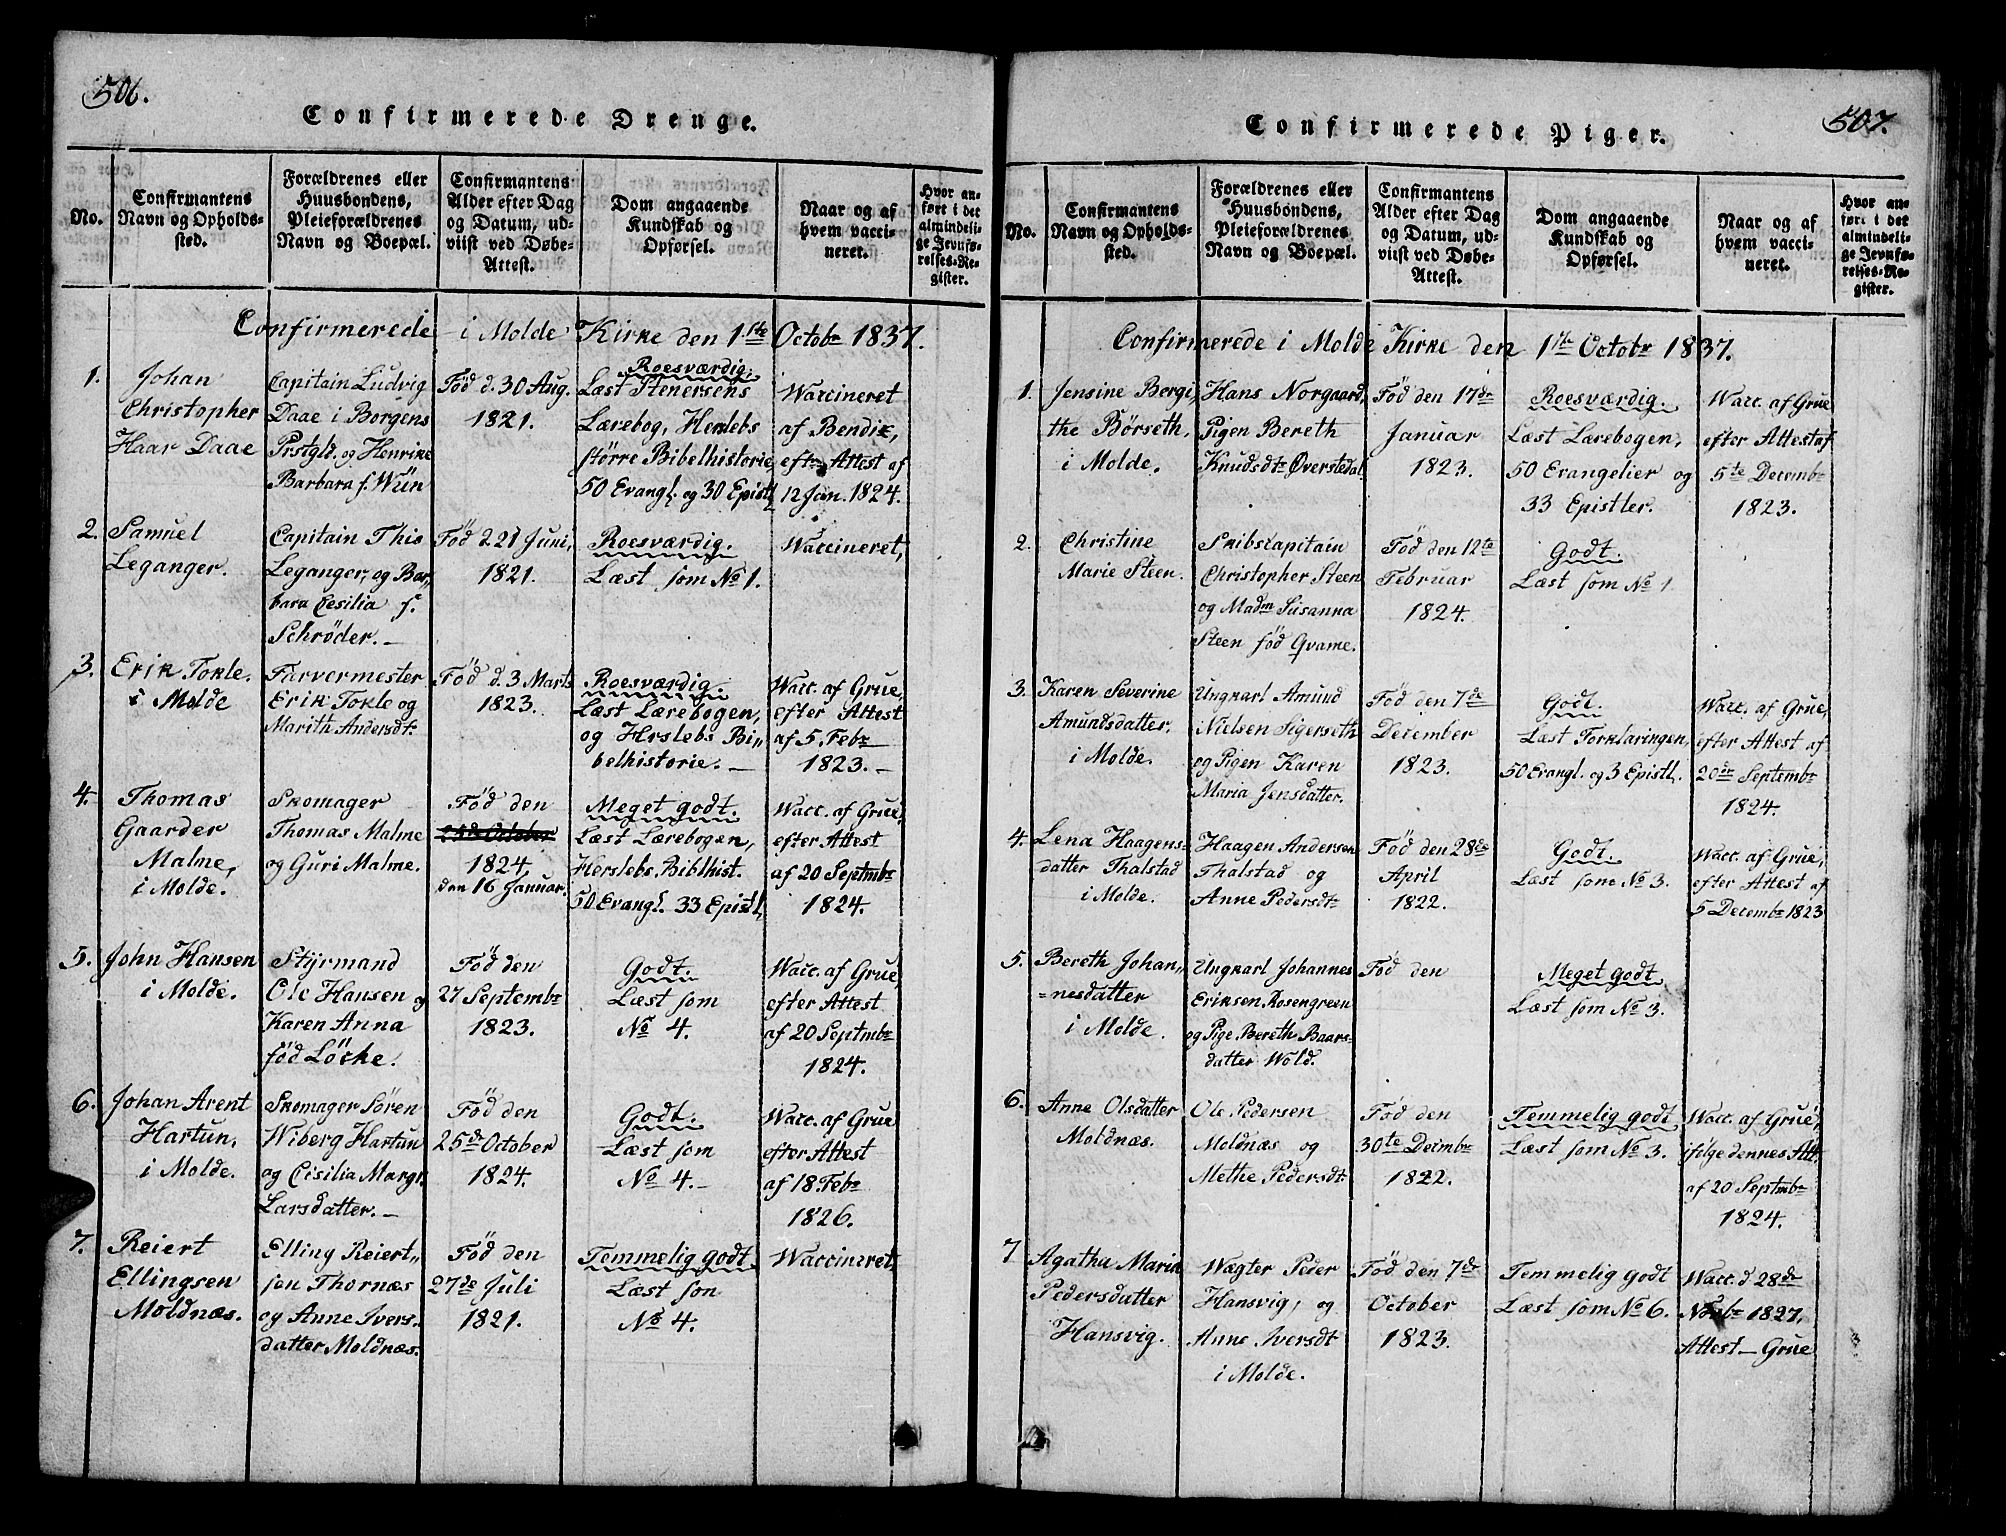 506.
Confirmerede Drenge.
No.
Confirmantens
Navn og Opholds-
sted.
Forældrenes eller
Huusbondens,
Pleieforældrenes
Navn og Boepæl.
Confirmantens
Alder efter Dag
og Datum, ud-
viist ved Døbe-
Attest.
Dom angaaende
Kundskab og
Opførsel.
Naar og af
hvem vacci-
neret.
Hvor an-
ført i det
almindeli-
ge Jevnfø-
relses-Re-
gister.
Confirmerede i Molde Kirke den 1ste Octobr 1837.
1.
Johan
Christopher
Haar Daae
Capitain Ludvig
Daae i Borgens
Prstgld. og Henrike
Barbara f. Wün
Fød d. 30 Aug.
1821.
Roesværdig.
Læst Stenersens
Lærebog, Herslebs
større Bibelhistorie
50 Evangl. og 30 Epistl
Waccineret
af Bendix,
eftr Attest af
12 Jan. 1824.
2.
Samuel
Leganger.
Capitain This
Leganger, og Bar,
bara Cesilia f.
Schrøder. –
Fød 221 Juni,
1821.
Roesværdig.
Læst som No 1.
Waccineret,
3.
Erik Tokle.
i Molde
Farvermester
Erik Tokle og
Marith Andersdt.
Fød d. 3 Marts
1823.
Roesværdig.
Læst Lærebogen,
og Herslebs Bi,,
belhistorie. –
Wacc. af Grue,
efter Attest
af 5. Febr
1823. –
4.
Thomas
Gaarder
Malme,
i Molde.
Skomager
Thomas Malme
og Guri Malme.
Fød den
25de October
1824,
den 16 Januar.
Meget godt.
Læst Lærebogen,
Herslebs Biblhist.
50 Evangl. 33 Epistl,
Wacc. af Grue,
efter Attest
af 20 Septmbr
1824.
5.
John Hansen
i Molde.
Styrmand
Ole Hansen og
Karen Anna
fød Löcke.
Fød den
27 Septembr
1823.
Godt.
Læst som
No 4.
Wacc. af Grue,
efter Attest
af 20 Septmbr
1824.
6.
Johan Arent
Hartun,
i Molde.
Skomager Søren
Wiberg Hartun
og Cisilia Margr.
Larsdatter. –
Fød den
25de October
1824.
Godt.
Læst som
No 4. –
Wacc. af Grue
efter Attest
af 18 Febr
1826.
7.
Reiert
Ellingsen
Moldnæs.
Elling Reiert,,
sen Thornæs
og Anne Ivers.
datter Moldnæs.
Fød den
27de Juli
1821.
Temmelig godt
Læst son
No 4.
Waccineret
507.
Confirmerede Piger.
No.
Confirmantens
Navn og Opholds-
sted.
Forældrenes eller
Huusbondens,
Pleieforældrenes
Navn og Boepæl.
Confirmantens
Alder efter Dag
og Datum, ud-
viist ved Døbe-
Attest.
Dom angaaende
Kundskab og
Opførsel.
Naar og af
hvem vacci-
neret.
Hvor an-
ført i det
almindeli-
ge Jevnfø-
relses-Re-
gister.
Confirmerede i Molde Kirke den 1ste Octobr 1837.
1.
Jensine Bergi,
the Börseth,
i Molde.
Hans Norgaard,
Pigen Bereth
Knudsdtr Øverstedal
Fød den 17de
Januar
1823.
Roesværdig.
Læst Lærebogen,
50 Evangelier og
33 Epistler.
Wacc. af Grue
efter Attest af
5te Decembr
1823.
2.
Christine
Marie Steen.
Skibscapitain
Christopher Steen
og Madm Susanna
Steen fød Qvame.
Fød den 12te
Februar
1824.
Godt.
Læst som No 1
3.
Karen Severine
Amundsdatter.
i Molde.
Ungkarl Amund
Nielsen Sigerseth
og Pigen Karen
Maria Jensdatter.
Fød den 7de
December
1823.
Godt.
Læst Forklaringen,
50 Evangl. og 3 Epistl.
Wacc. af Grue,
efter Attest af
20de Septembr
1824.
4.
Lena Haagens-
datter Thalstad
i Molde.
Haagen Andersen
Thalstad og
Anne Pedersdtr
Fød den 28de
April
1822.
Godt.
Læst som No 3.
Wacc. af Grue,
efter Attest af
5 Decembr 1823
5.
Bereth Johan,,
=nesdatter
i Molde.
Ungkarl Johannes
Eriksen Rosengreen
og Pige Bereth Baars-
datter Wold.
Fød den
Meget godt
Læst som No 3.
6.
Anne Olsdatter
Moldnæs.
Ole Pedersen
Moldnæs og
Methe Pedersdtr
Fød den
30te Deimbr
1822.
Temmelig godt
Læst som No 3.
Wacc. af Grue,
ifølge dennes Att.
af 20 Septmbr
1824.
7
Agatha Maria
Pedersdatter
Hansvig.
Wægter Peder
Hansvig, og
Anne Iversdt
i Molde.
Fød den 7de
October
1823.
Temmelig godt
Læst som No 6.
Wacc. d 28de
Novbr 1827,
Attest – Grue